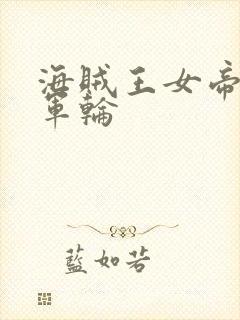 海賊王女帝
軍輪
藍如若